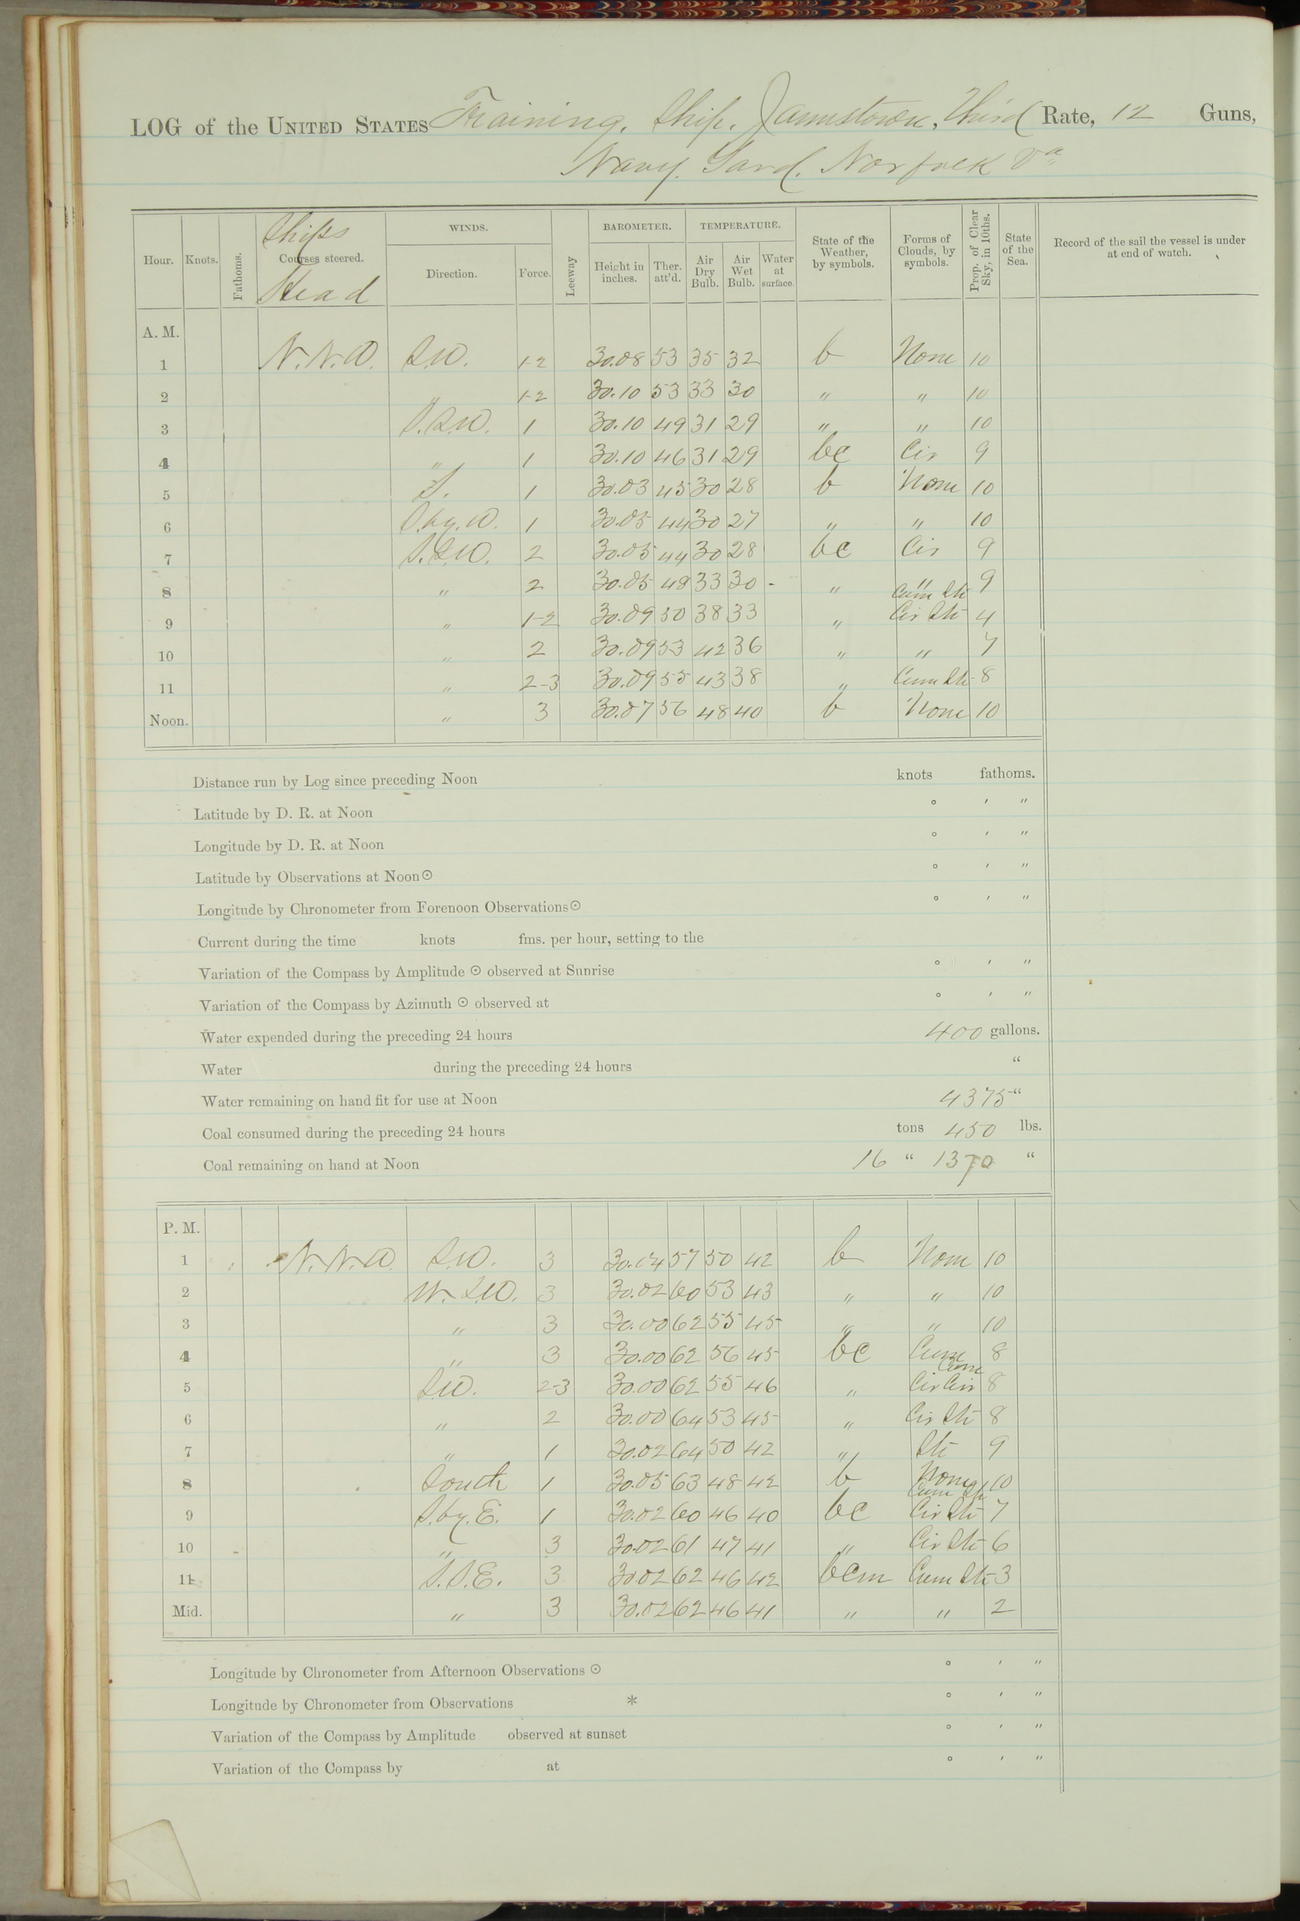 LOG of the UNITED STATES Training Ship Jamestown, Third Rate, 12 Guns,
Navy Yard, Norfolk Va
Hour. Knots. Fathoms. Ships Courses steered. Head WINDS. Direction. Force. Leeway BAROMETER. Height in inches. Ther. att'd. TEMPERATURE. Air Dry Bulb. Air Wet Bulb. Water at surface. State of the Weather, by symbols. Forms of Clouds, by symbols. Prop. of Clear Sky, in 10ths. State of the Sea. Record of the sail the vessel is under at end of watch.
A. M.
1 N.N.W. S.W. 1-2 30.08 53 35 32 b None 10
2 " 1-2 30.10 53 33 30 " " 10
3 S.S.W. 1 30.10 49 31 29 " " 10
4 " 1 30.10 46 31 29 bc Cir 9
5 S. 1 30.03 45 30 28 b None 10
6 S.by.W. 1 30.05 44 30 27 " " 10
7 S.S.W. 2 30.05 44 30 28 bc Cir 9
8 " 2 30.05 48 33 30 - " " 9
9 " 1-2 30.09 50 38 33 " Cum Str Cir Str 4
10 " 2 30.09 53 42 36 " " 7
11 " 2-3 30.09 55 43 38 " Cum Str 8
Noon. " 3 30.07 56 48 40 b None 10
Distance run by Log since preceding Noon knots fathoms.
Latitude by D. R. at Noon ° ′ ″
Longitude by D. R. at Noon ° ′ ″
Latitude by Observations at Noon ⊙ ° ′ ″
Longitude by Chronometer from Forenoon Observations ⊙ ° ′ ″
Current during the time knots fms. per hour, setting to the
Variation of the Compass by Amplitude ⊙ observed at Sunrise ° ′ ″
Variation of the Compass by Azimuth ⊙ observed at ° ′ ″
Water expended during the preceding 24 hours 400 gallons.
Water during the preceding 24 hours “
Water remaining on hand fit for use at Noon 4375 “
Coal consumed during the preceding 24 hours tons 450 lbs.
Coal remaining on hand at Noon 16 “ 1370 “
P. M.
1 N.N.W S.W. 3 30.04 57 50 42 b None 10
2 W.S.W. 3 30.02 60 53 43 " " 10
3 " 3 30.00 62 55 45 " " 10
4 " 3 30.00 62 56 45 bc Cum 8
5 S.W. 2-3 30.00 62 55 46 " Cum Cir Cir 8
6 " 2 30.00 64 53 45 " Cir Str 8
7 " 1 30.02 64 50 42 " Str 9
8 South 1 30.05 63 48 42 b None 10
9 S.by.E. 1 30.02 60 46 40 bc Cum Str Cir Str 7
10 " 3 30.02 61 47 41 " Cir Str 6
11 S.S.E. 3 30.02 62 46 42 bcm Cum Str 3
Mid. " 3 30.02 62 46 41 " " 2
Longitude by Chronometer from Afternoon Observations ⊙ ° ′ ″
Longitude by Chronometer from Observations * ° ′ ″
Variation of the Compass by Amplitude observed at sunset ° ′ ″
Variation of the Compass by at ° ′ ″